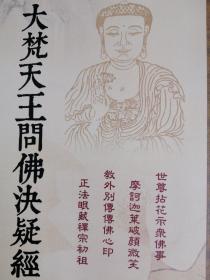 大梵天王問佛決疑經
世尊拈花示衆佛事
摩訶迦葉破顏微笑
教外別傳傳佛心印
正法眼藏禪宗初祖